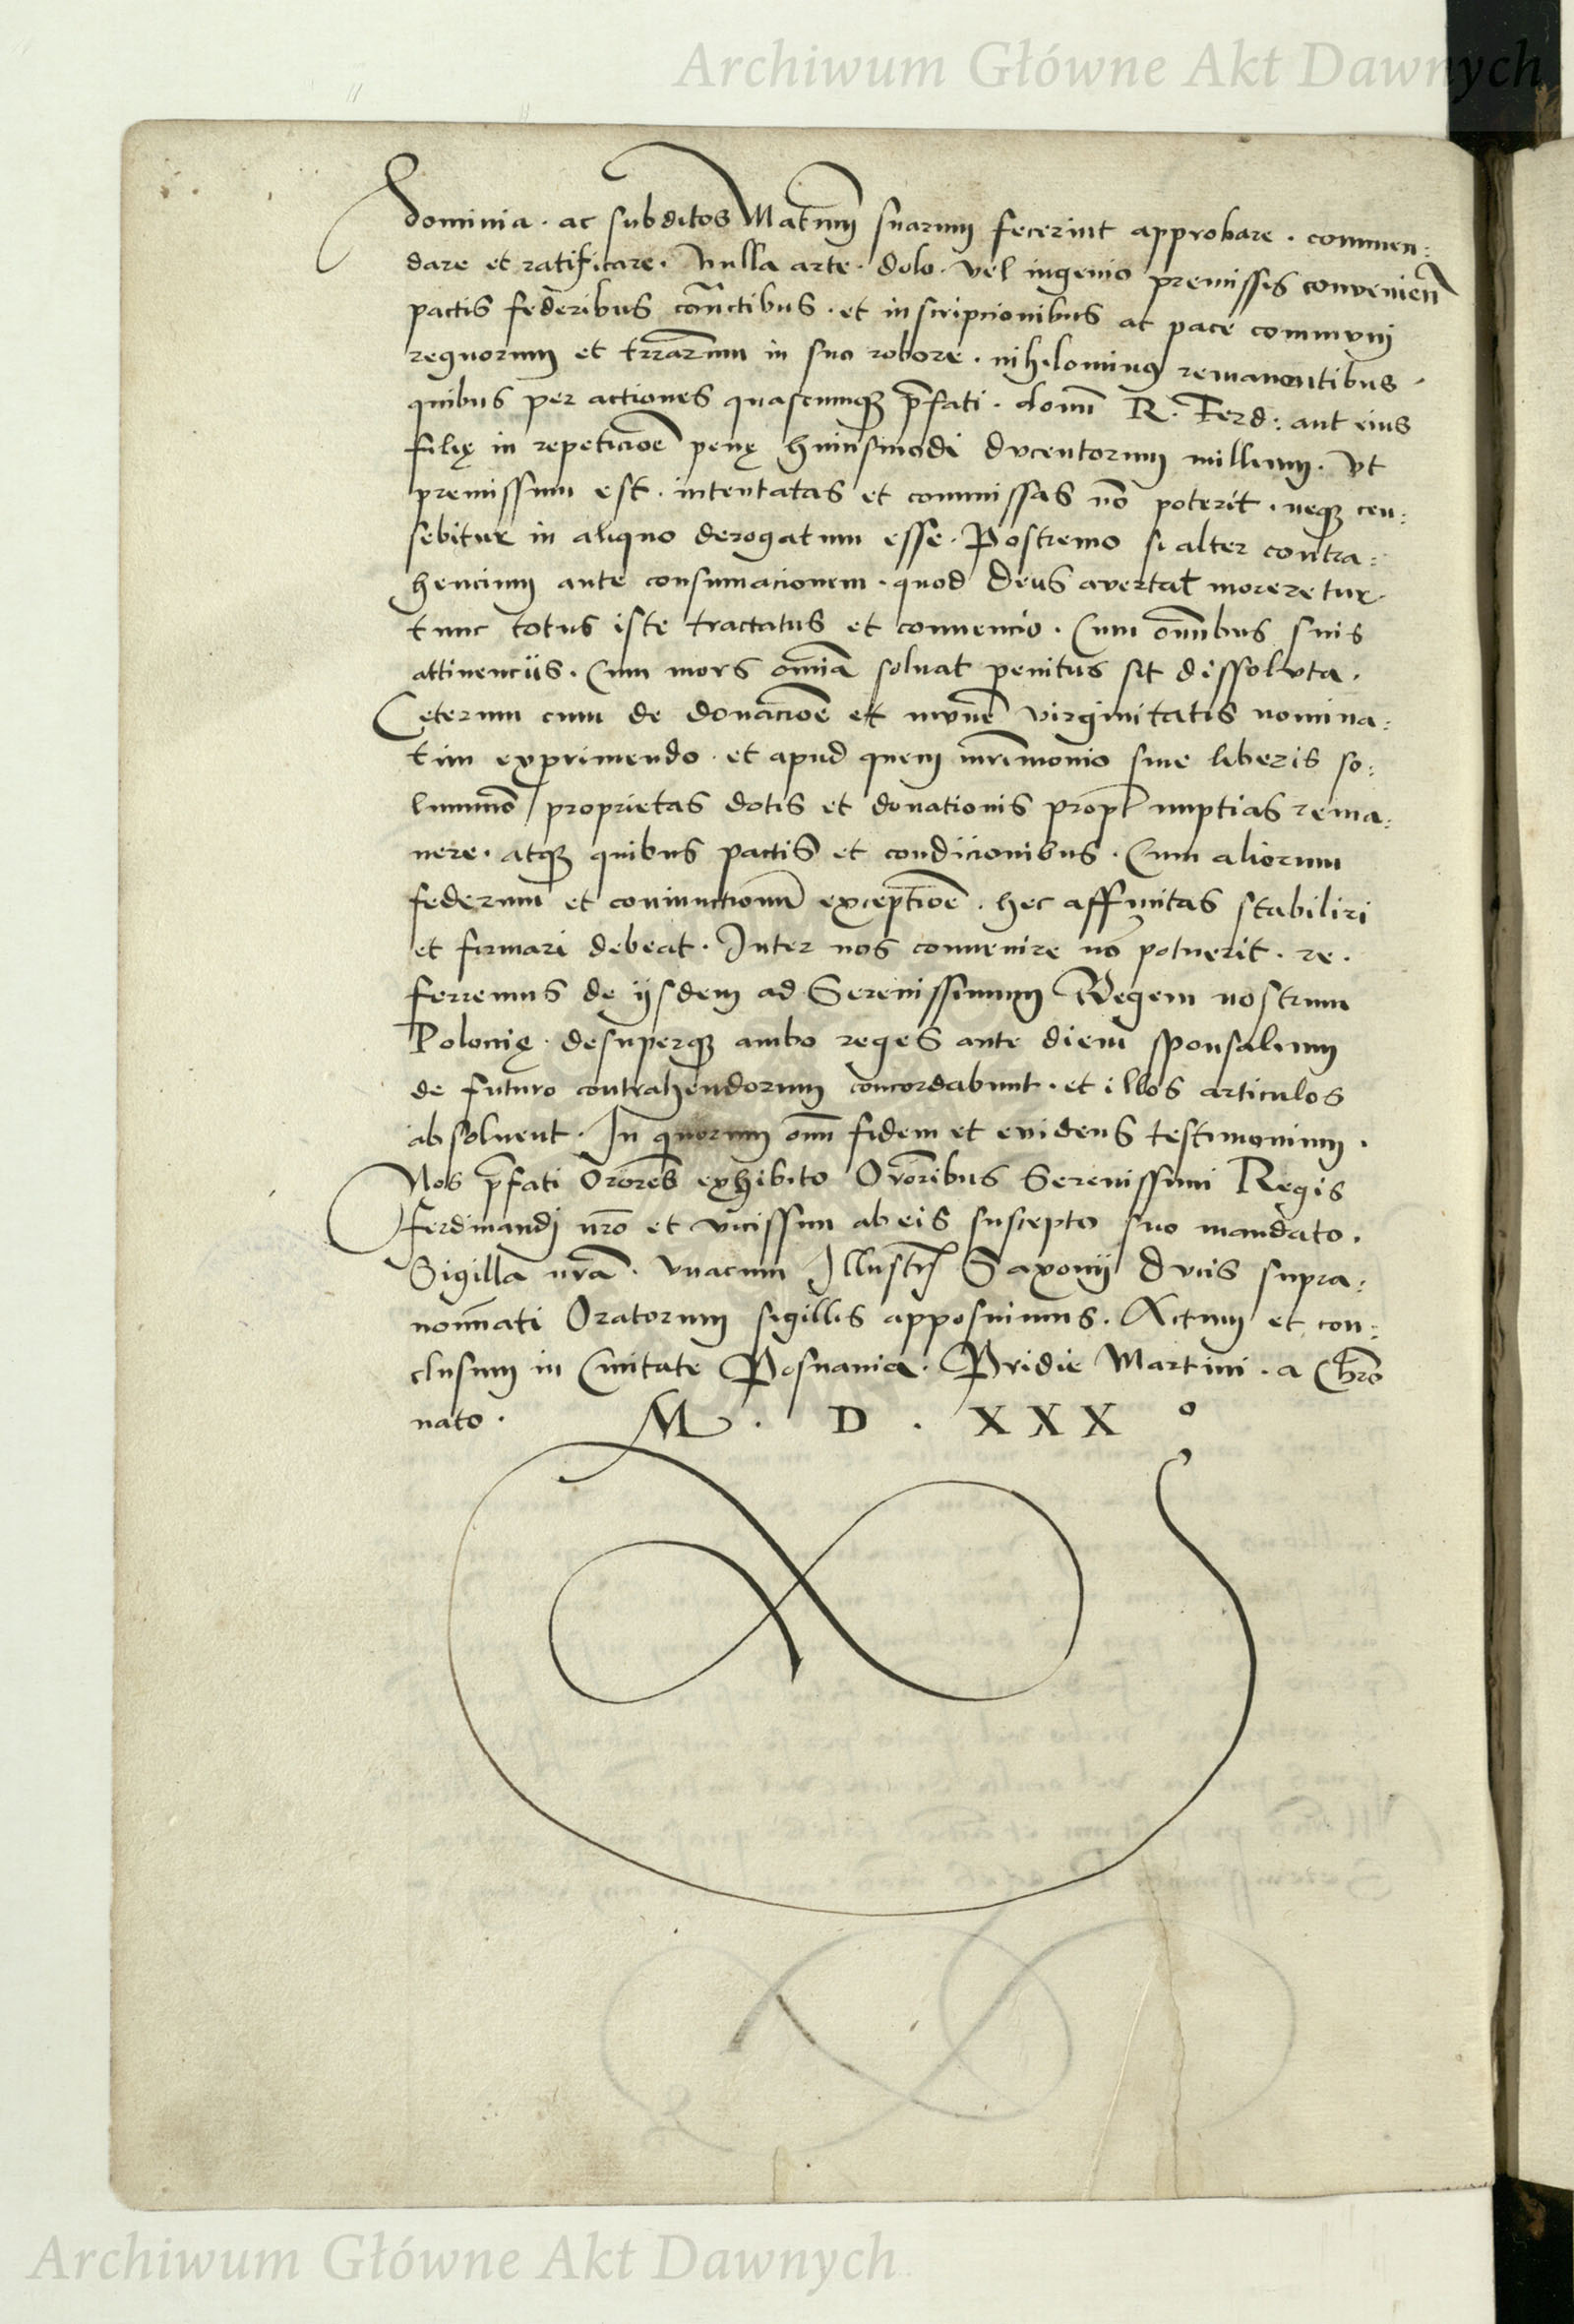 Archiwum Główne Akt Dawnych
dominia · ac subditos Mat̃um suarum fecerint approbare · commen:
dare et ratificare · Nulla arte · dolo · vel ingenio premissis convenien̄
pactis federibus cõtractibus · et inscripcionibus ac pace communj
regnorum et trrarum in suo robore · nihilominus remanentibus ·
quibus per actiones quascumque p̄fati · domi R. Ferd: aut eius
filię in repeticiōe penę huiusmodi ducentorum millium · vt
premissum est · intentatas et commissas nō poterit · neque cen:
sebitur in aliquo derogatum esse · Postremo si alter contra:
hencium ante consumacionem · quod deus avertat moreretur ·
tunc totus iste tractatus et convencio · Cum omībus suis
attinencijs · Cum mors omīa soluat penitus sit dissolvta ·
Ceterum cum de donaciōe et mvnē virginitatis nomina:
tim exprimendo · et apud quem mr̄imonio sine liberis so:
lummō / proprietas dotis et donationis propt̄ nuptias rema:
nere · atque quibus pactis et condicionibus · Cum aliorum
federum et coniunctionū exceptiōe · hec affinitas stabiliri
et firmari debeat · Inter nos convenire nō potuerit · re ·
ferremus de ijsdem ad Serenissimum Regem nostrum
Polonię · desuperque ambo reges ante diem sponsalium
de futuro contrahendorum concordabunt · et illos articulos
absoluent · In quorum om̄ fidem et euidens testimonium ·
Nos p̄fati Orōres exhibito Orōribus Serenissimi Regis
Ferdinandj nr̄o et vicissim ab eis suscepto suo mandato ·
Sigilla nr̄a · vnacum Illustr̄ Saxonij dvcis supra:
nom̄ati Oratorum sigillis apposuimus · Actum et con:
clusum in Ciuitate Posnania · Pridie Martini · a Chr̄o
nato · M · D · XXX °
Archiwum Główne Akt Dawnych